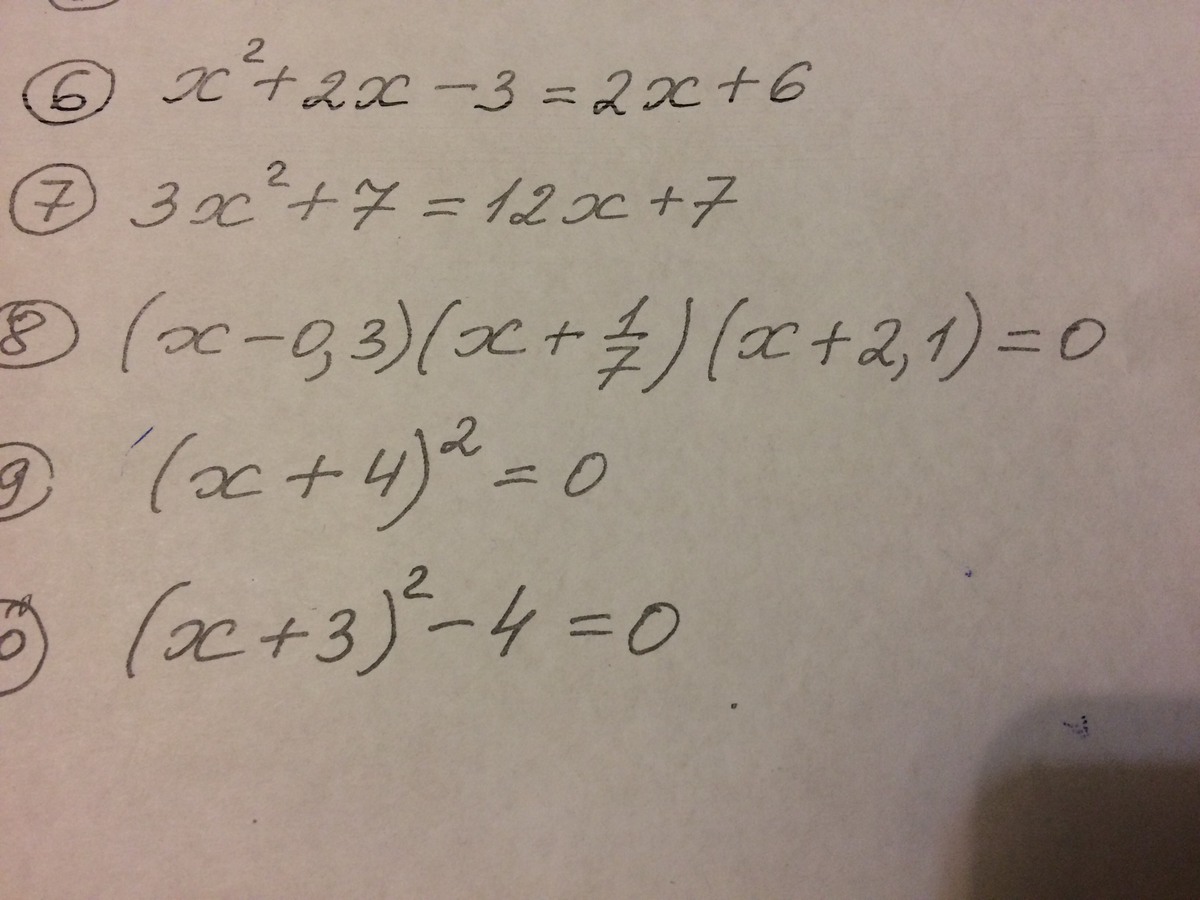 ⑥ x² + 2x - 3 = 2x + 6
⑦ 3x² + 7 = 12x + 7
⑧ (x - 0,3)(x + 1/7)(x + 2,1) = 0
⑨ (x + 4)² = 0
(x + 3)² - 4 = 0